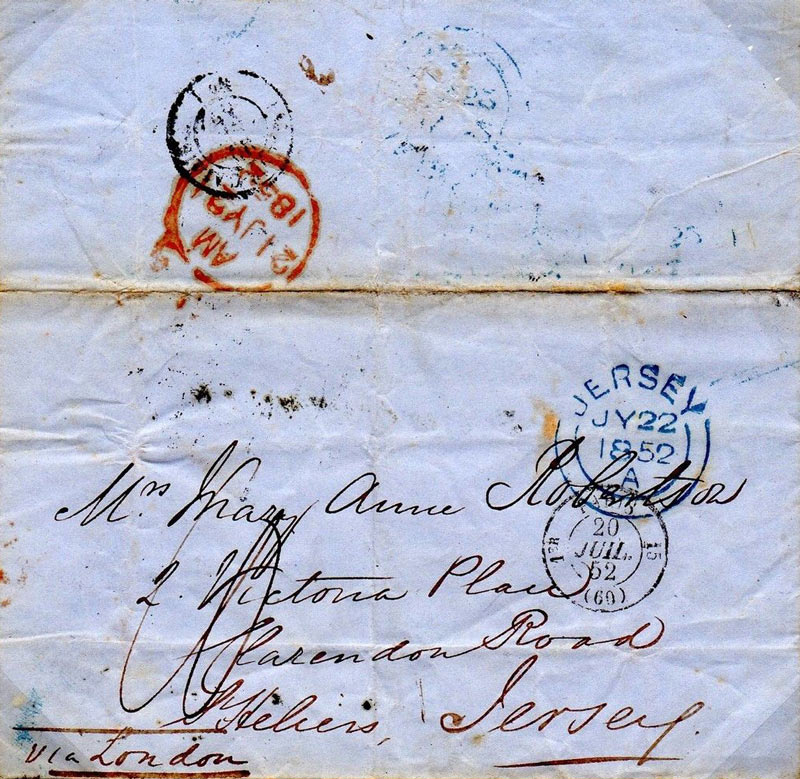 AM
21 JY 21
1852
JERSEY
JY 22
1852
A
Mrs Mary Anne Robertson
20
JUIL.
52
(60)
1ER
15
2. Victoria Place
Clarendon Road
St Heliers, Jersey.
via London